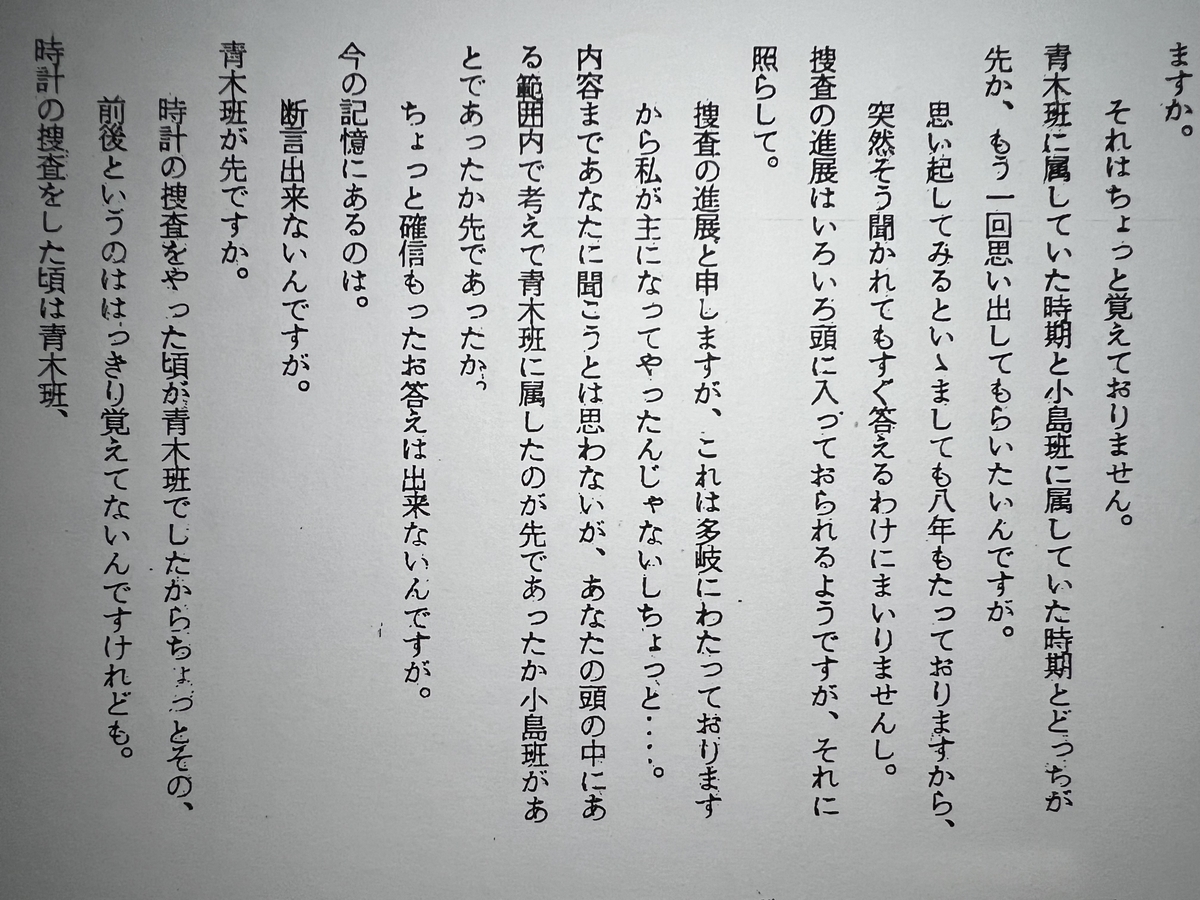 ますか。
それはちょっと覚えておりません。
青木班に属していた時期と小島班に属していた時期とどっちが
先か、もう一回思い出してもらいたいんですが。
思い起してみるといゝましても八年もたっておりますから、
突然そう聞かれてもすぐ答えるわけにまいりませんし。
捜査の進展はいろいろ頭に入っておられるようですが、それに
照らして。
捜査の進展と申しますが、これは多岐にわたっております
から私が主になってやったんじゃないしちょっと‥‥。
内容まであなたに聞こうとは思わないが、あなたの頭の中にあ
る範囲内で考えて青木班に属したのが先であったか小島班があ
とであったか先であったか。
ちょっと確信もったお答えは出来ないんですが。
今の記憶にあるのは。
断言出来ないんですが。
青木班が先ですか。
時計の捜査をやった頃が青木班でしたからちょっとその、
前後というのははっきり覚えてないんですけれども。
時計の捜査をした頃は青木班、